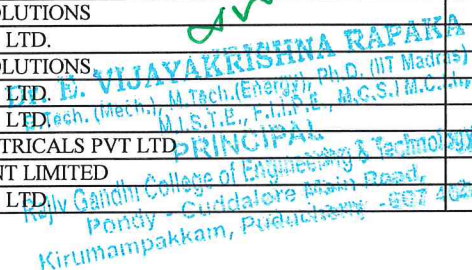 OLUTIONS
LTD.
OLUTIONS
LTD.
LTD.
TRICALS PVT LTD
NT LIMITED
LTD.
Dr. E. VIJAYAKRISHNA RAPAKA
B.Tech. (Mech.), M.Tech.(Energy), Ph.D. (IIT Madras)
M.I.S.T.E., F.I.I.P.E., M.C.S.I
PRINCIPAL
Rajiv Gandhi College of Engineering & Technology
Pondy - Cuddalore Main Road,
Kirumampakkam, Puducherry - 607 402